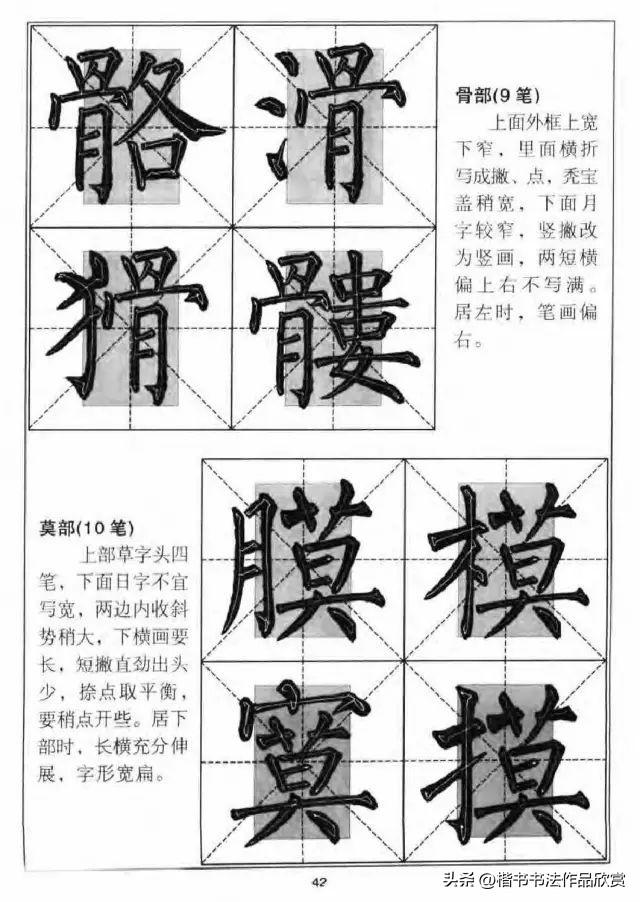 骼滑
猾髏
骨部(9 笔)
上面外框上宽
下窄，里面横折
写成撇、点，秃宝
盖稍宽，下面月
字较窄，竖撇改
为竖画，两短横
偏上右不写满。
居左时，笔画偏
右。
莫部(10 笔)
上部草字头四
笔，下面日字不宜
写宽，两边内收斜
势稍大，下横画要
长，短撇直劲出头
少，捺点取平衡，
要稍点开些。居下
部时，长横充分伸
展，字形宽扁。
膜模
寞摸
42
头条 @楷书书法作品欣赏